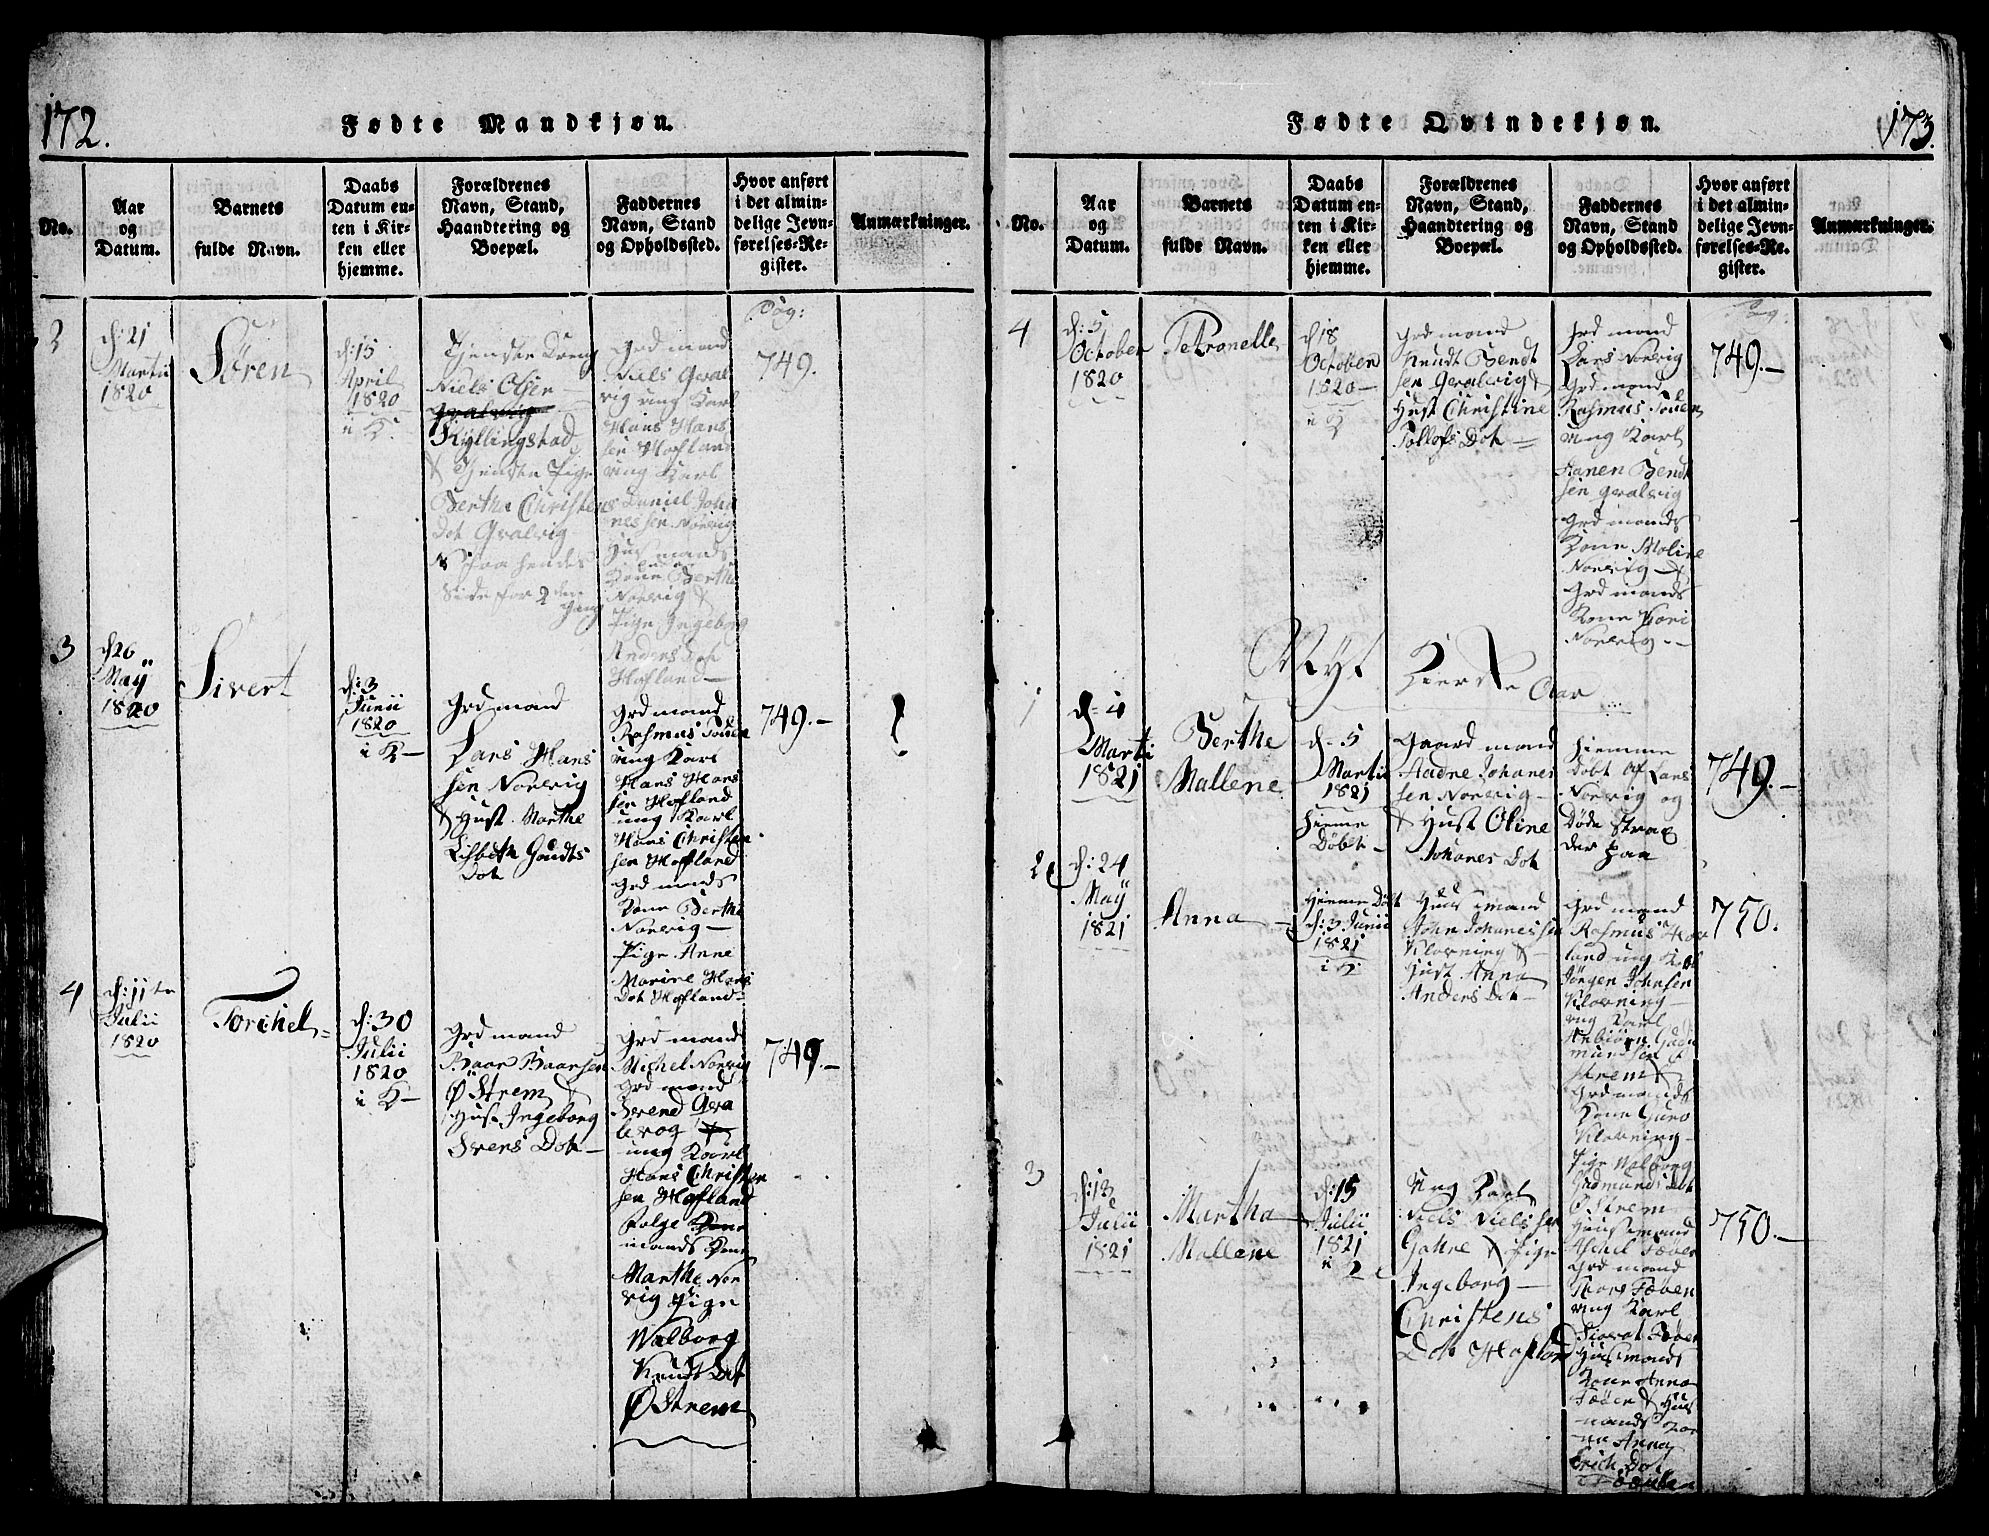 172.
Fødte Mandkjøn.
No.
Aar
og
Datum.
Barnets
fulde Navn.
Daabs
Datum en-
ten i Kir-
ken eller
hjemme.
Forældrenes
Navn, Stand,
Haandtering og
Boepæl.
Faddernes
Navn, Stand
og Opholdssted.
Hvor anført
i det almin-
delige Jevn-
førelses-Re-
gister.
Anmærkninger.
d: 21
Martii
1820
Søren
d: 15
April
1820
i K.
Tjenste Dreng
Niels Olsen
Gralvig
Kyllingstad
& Tjenste Pige
Bertha Christens
Dot Gralvig
paa hendes
Side for 2 den
Gang
Grd mand
Niels Gral
vig ung Karl
Hans Hans
sen Hofland
ung Karl
Daniel Joha
nessen Norvig
Huusmands
Kone Berthe
Norvig &
Pige Ingeborg
Anders Dot
Hofland
Pag:
749.
3
d 26
May
1820
Sivert
d: 3
Junii
1820
i K
Grd mand
Lars Hans
sen Norvig
& Hust. Marthe
Lisbeth Gaudts
Dot
Grd mand
Rasmus Touen
ung Karl
Hans Hans
sen Hofland
ung Karl
Hans Christen
sen Hofland
Grd mands
Kone Berthe
Norvig
Pige Anne
Marine Hans
Dot Hofland
749.
4
d: 11te
Julii
1820
Torchel
d: 30
Julii
1820
i K
Grd mand
Baar Baarsen
Østrem &
Hust Ingeborg
Svens Dot
Grd mand
Michel Norvig
Grd mand
Berend Gera
ung Karl
Hans Christen
sen Hofland
mands Kone
Marthe Nor
vig Pige
Walborg
Knuds Dot
Østrem
749.
173.
Fødte Qvindekjøn.
No.
Aar
og
Datum.
Barnets
fulde Navn.
Daabs
Datum en-
ten i Kir-
ken eller
hjemme.
Forældrenes
Navn, Stand,
Haandtering og
Boepæl.
Faddernes
Navn, Stand
og Opholdssted.
Hvor anført
i det almin-
delige Jevn-
førelses-Re-
gister.
Anmærkninger.
4
d: 5
October
1820
Petronelle
d 18
October
1820
i K
Grd mand
Knudt Bendt
sen Gralvig &
Hust Christine
Tollofs Dot
Grd mand
Lars Norvig
Grd mand
Rasmus Touen
ung Karl
Hanen Bendt
sen Gralvig
Grd mands
Kone Moline
Norvig &
Grd mands
Kone Kari
Norvig
Pag:
749.
Nyt Kierke Aar
1
d: 4
Marti
1821
Berthe
Mallene
d: 5
Martii
1821
Hieme
Døbt
Gaard mand
Aadne Johanes
sen Norvig
& Hust Oline
Johanes Dot
Hiemme
Døbt af Lars
Norvig og
Døde strax
der paa
749.
2
d: 24
May
1821
Anna
Hieme Døbt
d: 3 Junii
1821
i K
Huus mand
John Johanessen
Klovning &
Hust Anna
Anders Dot
Grd mand
Rasmus Hov
land ung Karl
Jørgen Johnsen
Klovning
ung Karl
Anbiørn Gud
mundsen Ø
strem &
Grd mands
Kone Guro
Klovning
Pige Walborg
Gudmunds Dot
Østrem
750.
3
d: 13
Julii
1821
Martha
Mallene
d: 15
Julii
1821
i
Ung Karl
Niels Nielssen
& Pige
Ingeborg
Christens
Dot Hofland
Huusmand
Grd mand
ung Karl
Huusmands
Kone Anna
& Huus
mands Ko
ne Anna
Erich Dot
750.